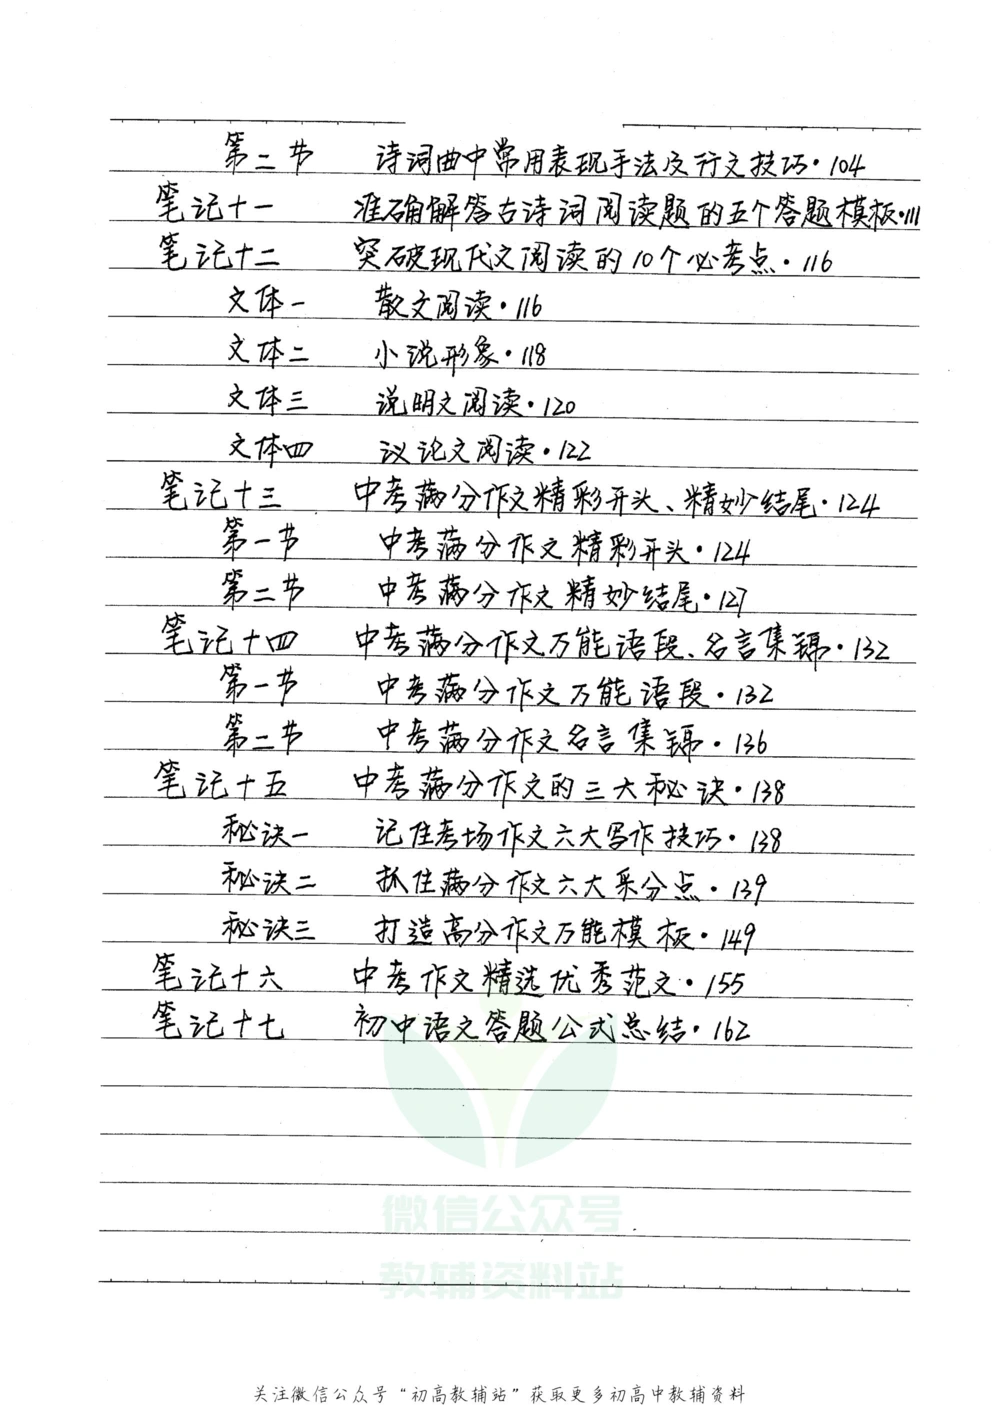 第二节 诗词曲中常用表现手法及行文技巧·104
笔记十一 准确解答古诗词阅读题的五个答题模板·111
笔记十二 突破现代文阅读的10个必考点·116
文体一 散文阅读·116
文体二 小说形象·118
文体三 说明文阅读·120
文体四 议论文阅读·122
笔记十三 中考满分作文精彩开头、精妙结尾·124
第一节 中考满分作文精彩开头·124
第二节 中考满分作文精妙结尾·127
笔记十四 中考满分作文万能语段、名言集锦·132
第一节 中考满分作文万能语段·132
第二节 中考满分作文名言集锦·136
笔记十五 中考满分作文的三大秘诀·138
秘诀一 记住考场作文六大写作技巧·138
秘诀二 抓住满分作文六大采分点·139
秘诀三 打造高分作文万能模板·149
笔记十六 中考作文精选优秀范文·155
笔记十七 初中语文答题公式总结·162
微信公众号
教辅资料站
关注微信公众号“初高教辅站”获取更多初高中教辅资料